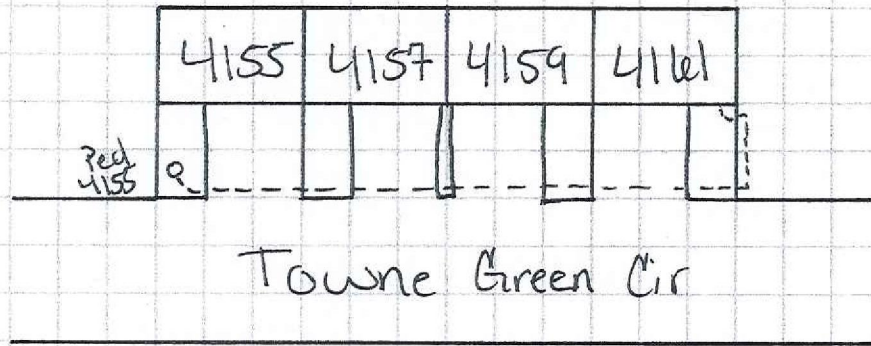 4155 4157 4159 4161
Ped
4155
Towne Green Cir